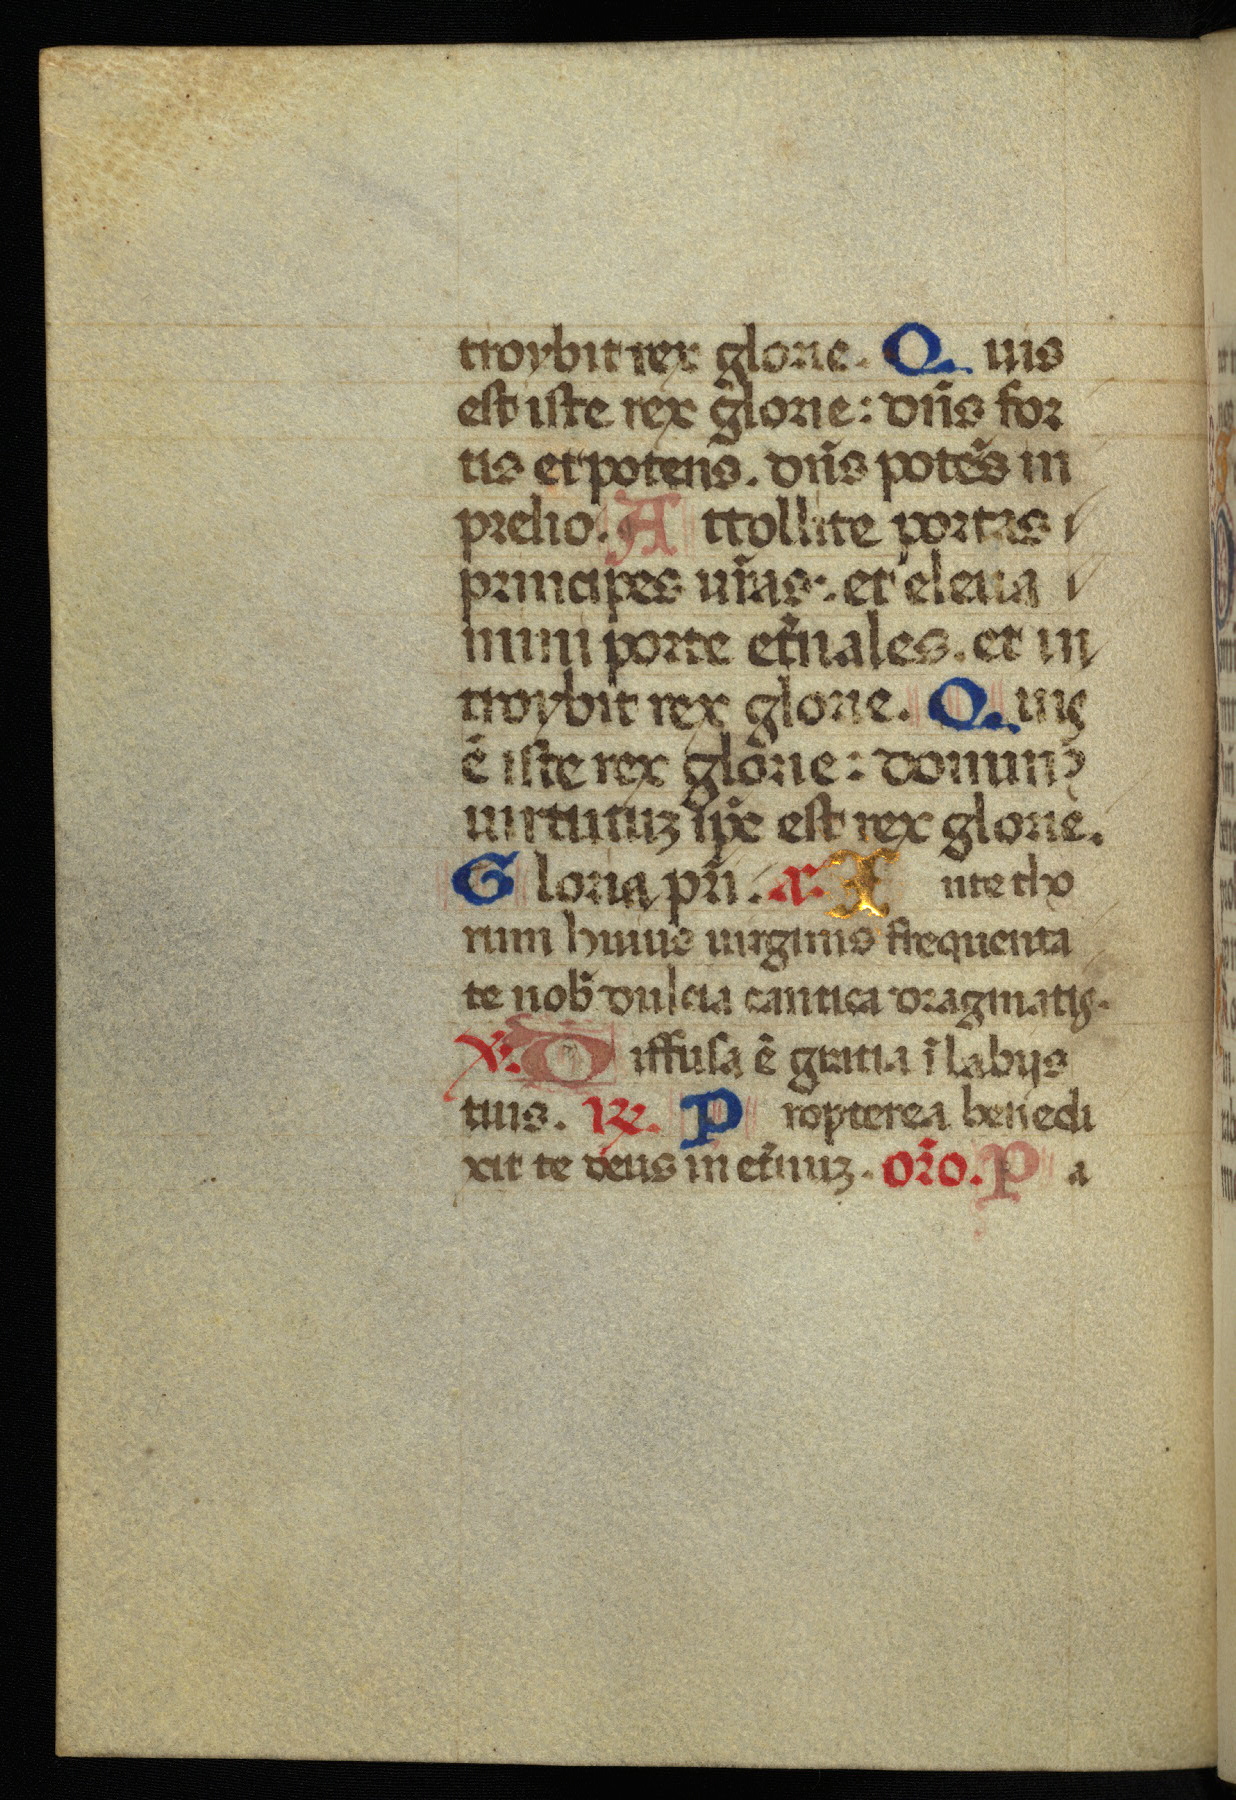 troybit rex glorie. Quis
est iste rex glorie: dñs for
tis et potens. dñs potẽs in
prelio. Attollite portas
principes ur̃as: et eleua
mini porte et̃nales. et in
troybit rex glorie. Quis
ẽ iste rex glorie: dominꝰ
uirtutuʒ ip̃e est rex glorie.
Gloria pr̃i. a. Ante tho
rum huius uirginis frequenta
te nob̃ dulcia cantica dragmatis.
℣. Diffusa ẽ gratia ĩ labijs
tuis. ℟. Propterea benedi
xit te deus in et̃nuʒ. or̃o. Pa